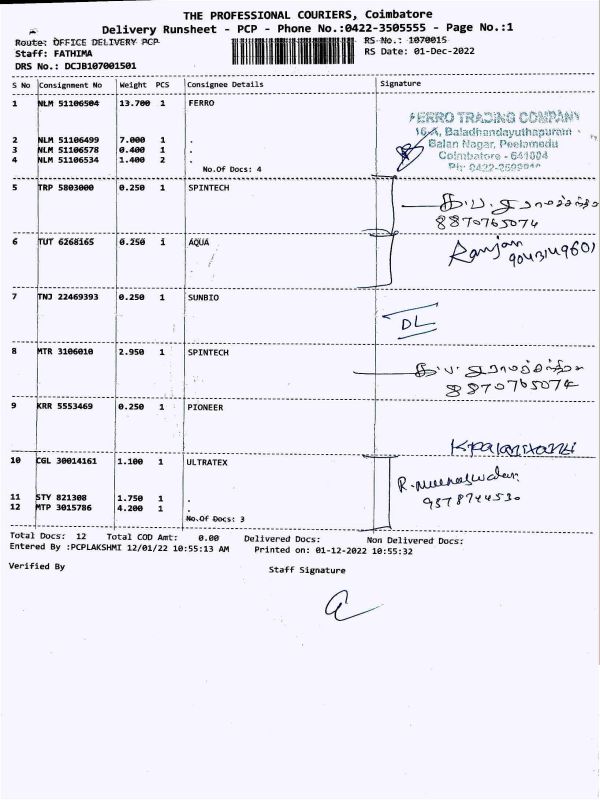 THE PROFESSIONAL COURIERS, Coimbatore
Delivery Runsheet - PCP - Phone No.:0422-3505555 - Page No.:1
Route: OFFICE DELIVERY PCP
RS No.: 1070015
Staff: FATHIMA
RS Date: 01-Dec-2022
DRS No.: DCJB107001501
S No Consignment No Weight PCS Consignee Details Signature
1 NLM 51106504 13.700 1 FERRO
FERRO TRADING COMPANY
16-A, Baladhandayuthapuram
2 NLM 51106499 7.000 1 .
Balan Nagar, Peelamedu
3 NLM 51106578 0.400 1 .
4 NLM 51106534 1.400 2 .
Coimbatore - 641004
No.Of Docs: 4
Ph: 0422-
5 TRP 5803000 0.250 1 SPINTECH
8870765074
6 TUT 6268165 0.250 1 AQUA
Ranjan
9043149601
7 TNJ 22469393 0.250 1 SUNBIO
DL
8 MTR 3106010 2.950 1 SPINTECH
8870765074
9 KRR 5553469 0.250 1 PIONEER
10 CGL 30014161 1.100 1 ULTRATEX
11 STY 821308 1.750 1 .
12 MTP 3015786 4.200 1 .
No.Of Docs: 3
Total Docs: 12 Total COD Amt: 0.00 Delivered Docs: Non Delivered Docs:
Entered By :PCPLAKSHMI 12/01/22 10:55:13 AM Printed on: 01-12-2022 10:55:32
Verified By Staff Signature